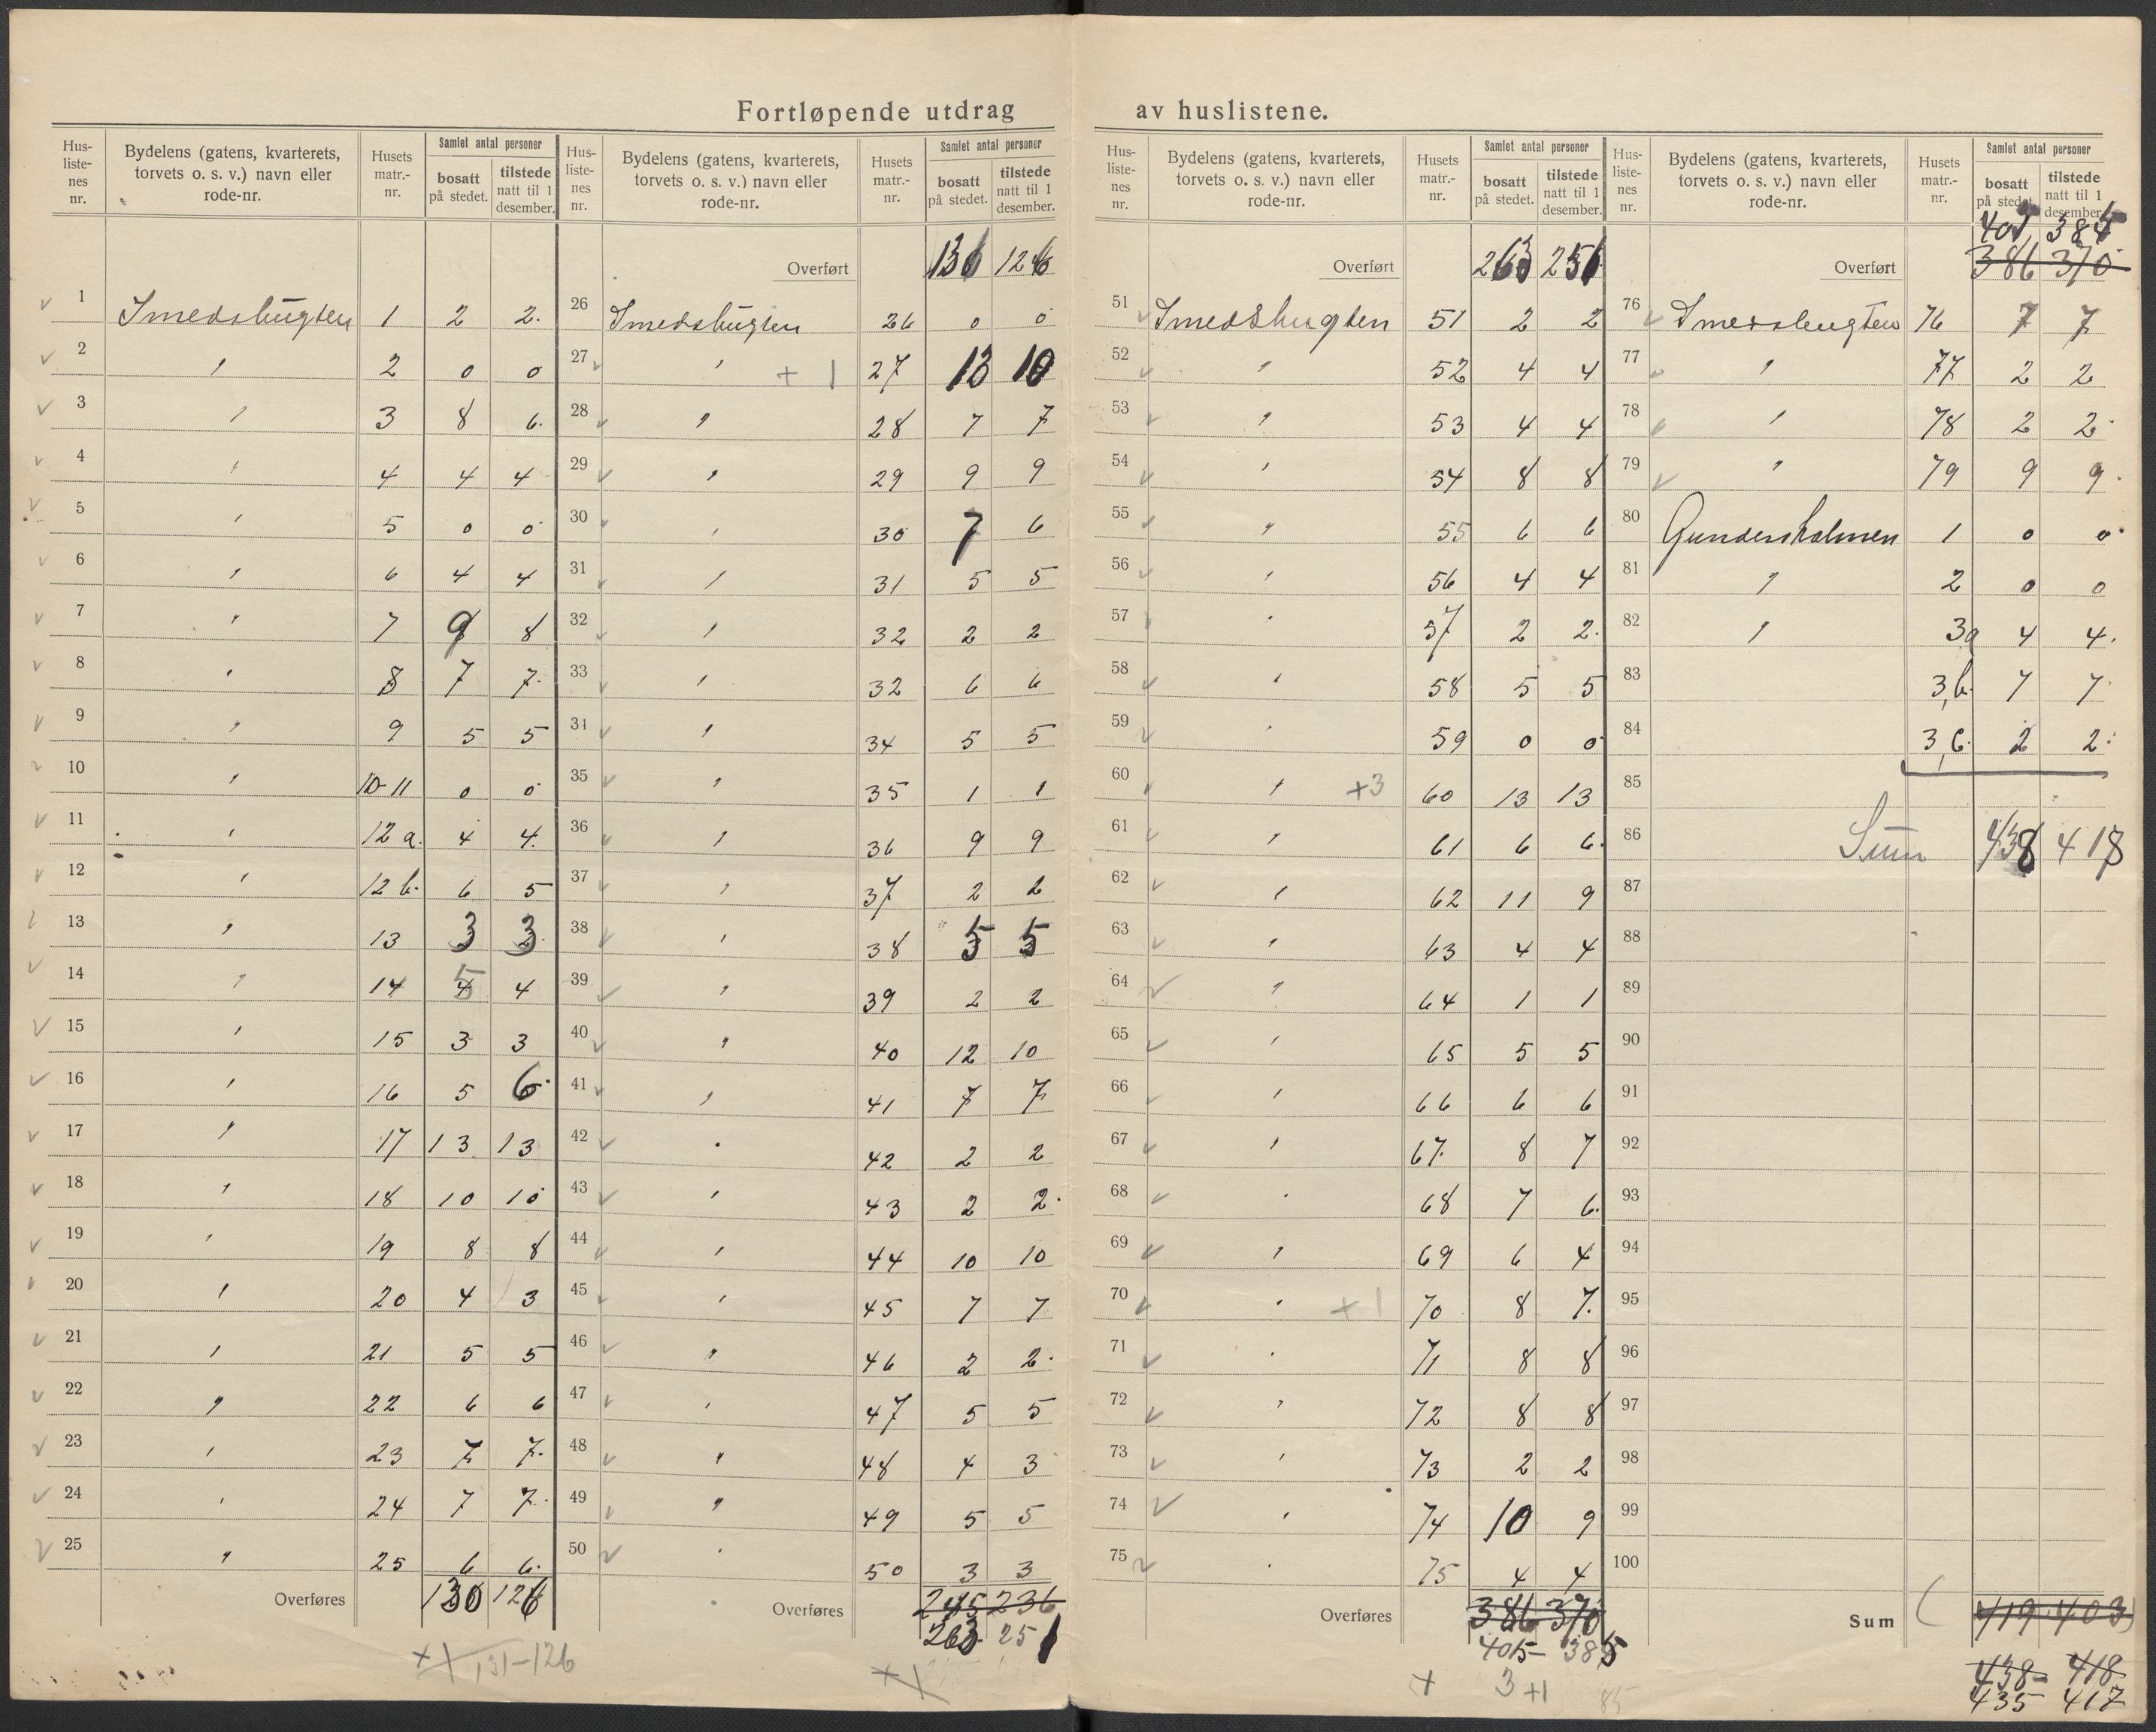 Fortløpende utdrag av huslistene.
Hus-liste-nes nr. | Bydelens (gatens, kvarterets, torvets o. s. v.) navn eller rode-nr. | Husets matr.-nr. | Samlet antal personer: bosatt på stedet. | tilstede natt til 1 desember.
1 Smedsbugten 1 2 2.
2 " 2 0 0
3 " 3 8 6.
4 " 4 4 4
5 " 5 0 0
6 " 6 4 4
7 " 7 9 8
8 " 8 7 7.
9 " 9 5 5
10 " 10-11 0 0
11 " 12 a. 4 4.
12 " 12 b. 6 5
13 " 13 3 3
14 " 14 5 4
15 " 15 3 3
16 " 16 5 6
17 " 17 13 13
18 " 18 10 10
19 " 19 8 8
20 " 20 4 3
21 " 21 5 5
22 " 22 6 6
23 " 23 7 7.
24 " 24 7 7.
25 " 25 6 6.
Overføres 130 126
+ 1 131-126
Hus-liste-nes nr. | Bydelens (gatens, kvarterets, torvets o. s. v.) navn eller rode-nr. | Husets matr.-nr. | Samlet antal personer: bosatt på stedet. | tilstede natt til 1 desember.
Overført 126
26 Smedsbugten 26 0 0
27 " + 1 27 13 10
28 " 28 7 7
29 " 29 9 9
30 " 30 7 6
31 " 31 5 5
32 " 32 2 2
33 " 32 6 6
34 " 34 5 5
35 " 35 1 1
36 " 36 9 9
37 " 37 2 2
38 " 38 5 5
39 " 39 2 2
40 " 40 12 10
41 " 41 7 7
42 " 42 2 2
43 " 43 2 2.
44 " 44 10 10
45 " 45 7 7
46 " 46 2 2.
47 " 47 5 5
48 " 48 4 3
49 " 49 5 5
50 " 50 3 3
Overføres 245 236
263 251
Hus-liste-nes nr. | Bydelens (gatens, kvarterets, torvets o. s. v.) navn eller rode-nr. | Husets matr.-nr. | Samlet antal personer: bosatt på stedet. | tilstede natt til 1 desember.
Overført 263 251
51 Smedsbugten 51 2 2
52 " 52 4 4
53 " 53 4 4
54 " 54 8 8
55 " 55 6 6
56 " 56 4 4
57 " 57 2 2.
58 " 58 5 5
59 " 59 0 0
60 " +3 60 13 13
61 " 61 6 6.
62 " 62 11 9
63 " 63 4 4
64 " 64 1 1
65 " 65 5 5
66 " 66 6 6
67 " 67. 8 7
68 " 68 7 6.
69 " 69 6 4
70 " + 1 70 8 7.
71 " 71 8 8
72 " 72 8 8
73 " 73 2 2
74 " 74 10 9
75 " 75 4 4
Overføres 386 370
405 385
+ 3 +1
Hus-liste-nes nr. | Bydelens (gatens, kvarterets, torvets o. s. v.) navn eller rode-nr. | Husets matr.-nr. | Samlet antal personer: bosatt på stedet. | tilstede natt til 1 desember.
Overført 386 370
76 Smedsbugten 76 7 7
77 " 77 2 2
78 " 78 2 2.
79 " 79 9 9.
80 Gundersholmen 1 0 0
81 " 2 0 0
82 " 3a 4 4.
83 3b. 7 7
84 3c. 2 2.
85
86 Sum 438 418
87
88
89
90
91
92
93
94
95
96
97
98
99
100
Sum 419 403
438 418
435 417